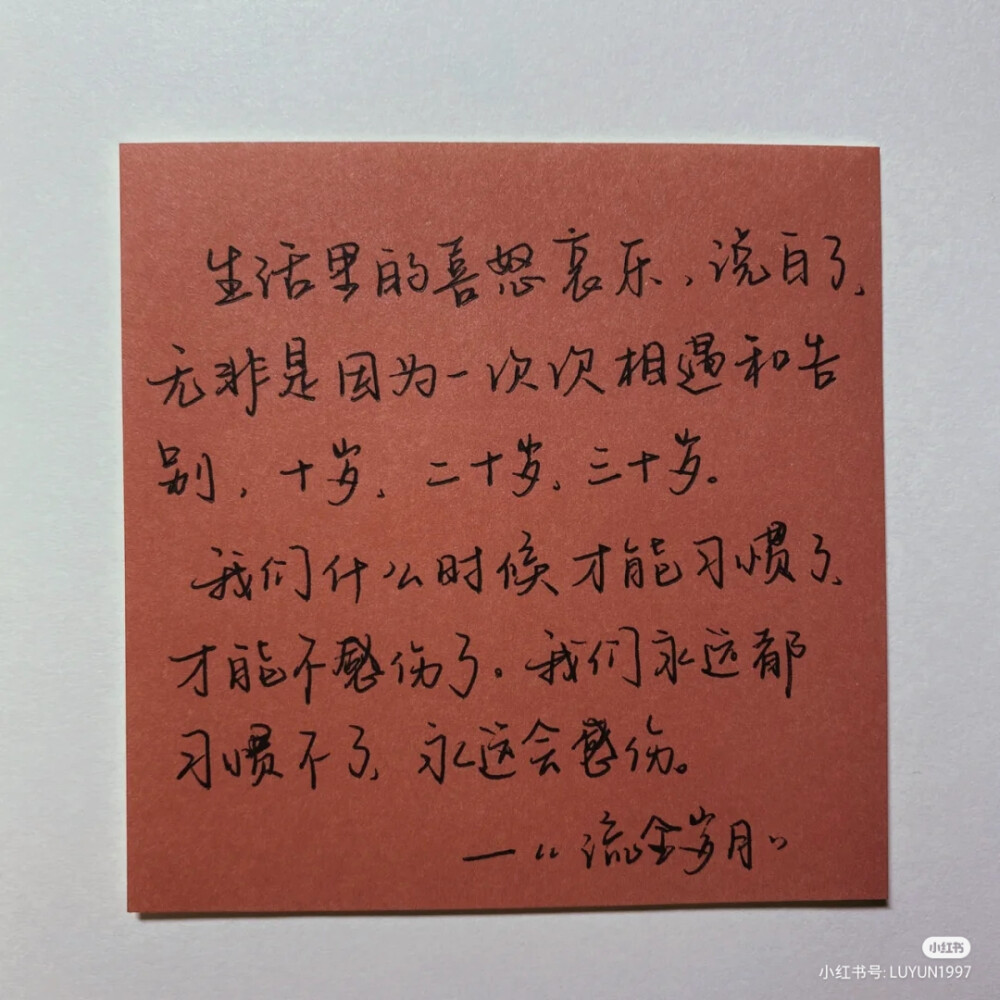 生活里的喜怒哀乐，说白了，
无非是因为一次次相遇和告
别，十岁，二十岁，三十岁。
我们什么时候才能习惯了，
才能不感伤了。我们永远都
习惯不了，永远会感伤。
—“流金岁月”
小红书
小红书号: LUYUN1997